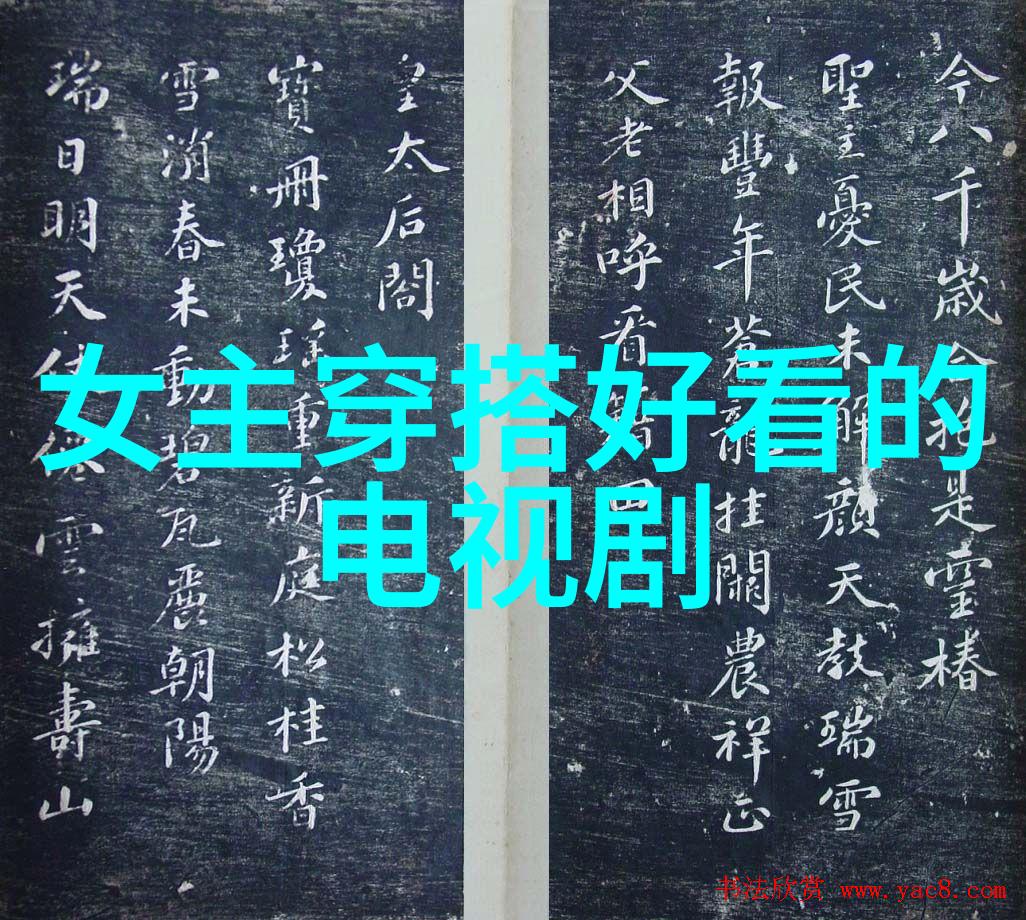 今八千歲合抱是靈椿
聖主憂民未解顏天教瑞雪
報豐年蒼龍挂闕農祥正
父老相呼看籍田
皇太后閣
寶冊瓊瑤重新庭松桂香
雪消春未動碧瓦麗朝陽
瑞日明天仗仙雲擁壽山
女主穿搭好看的
电视剧
书法欣赏 www.yac8.com